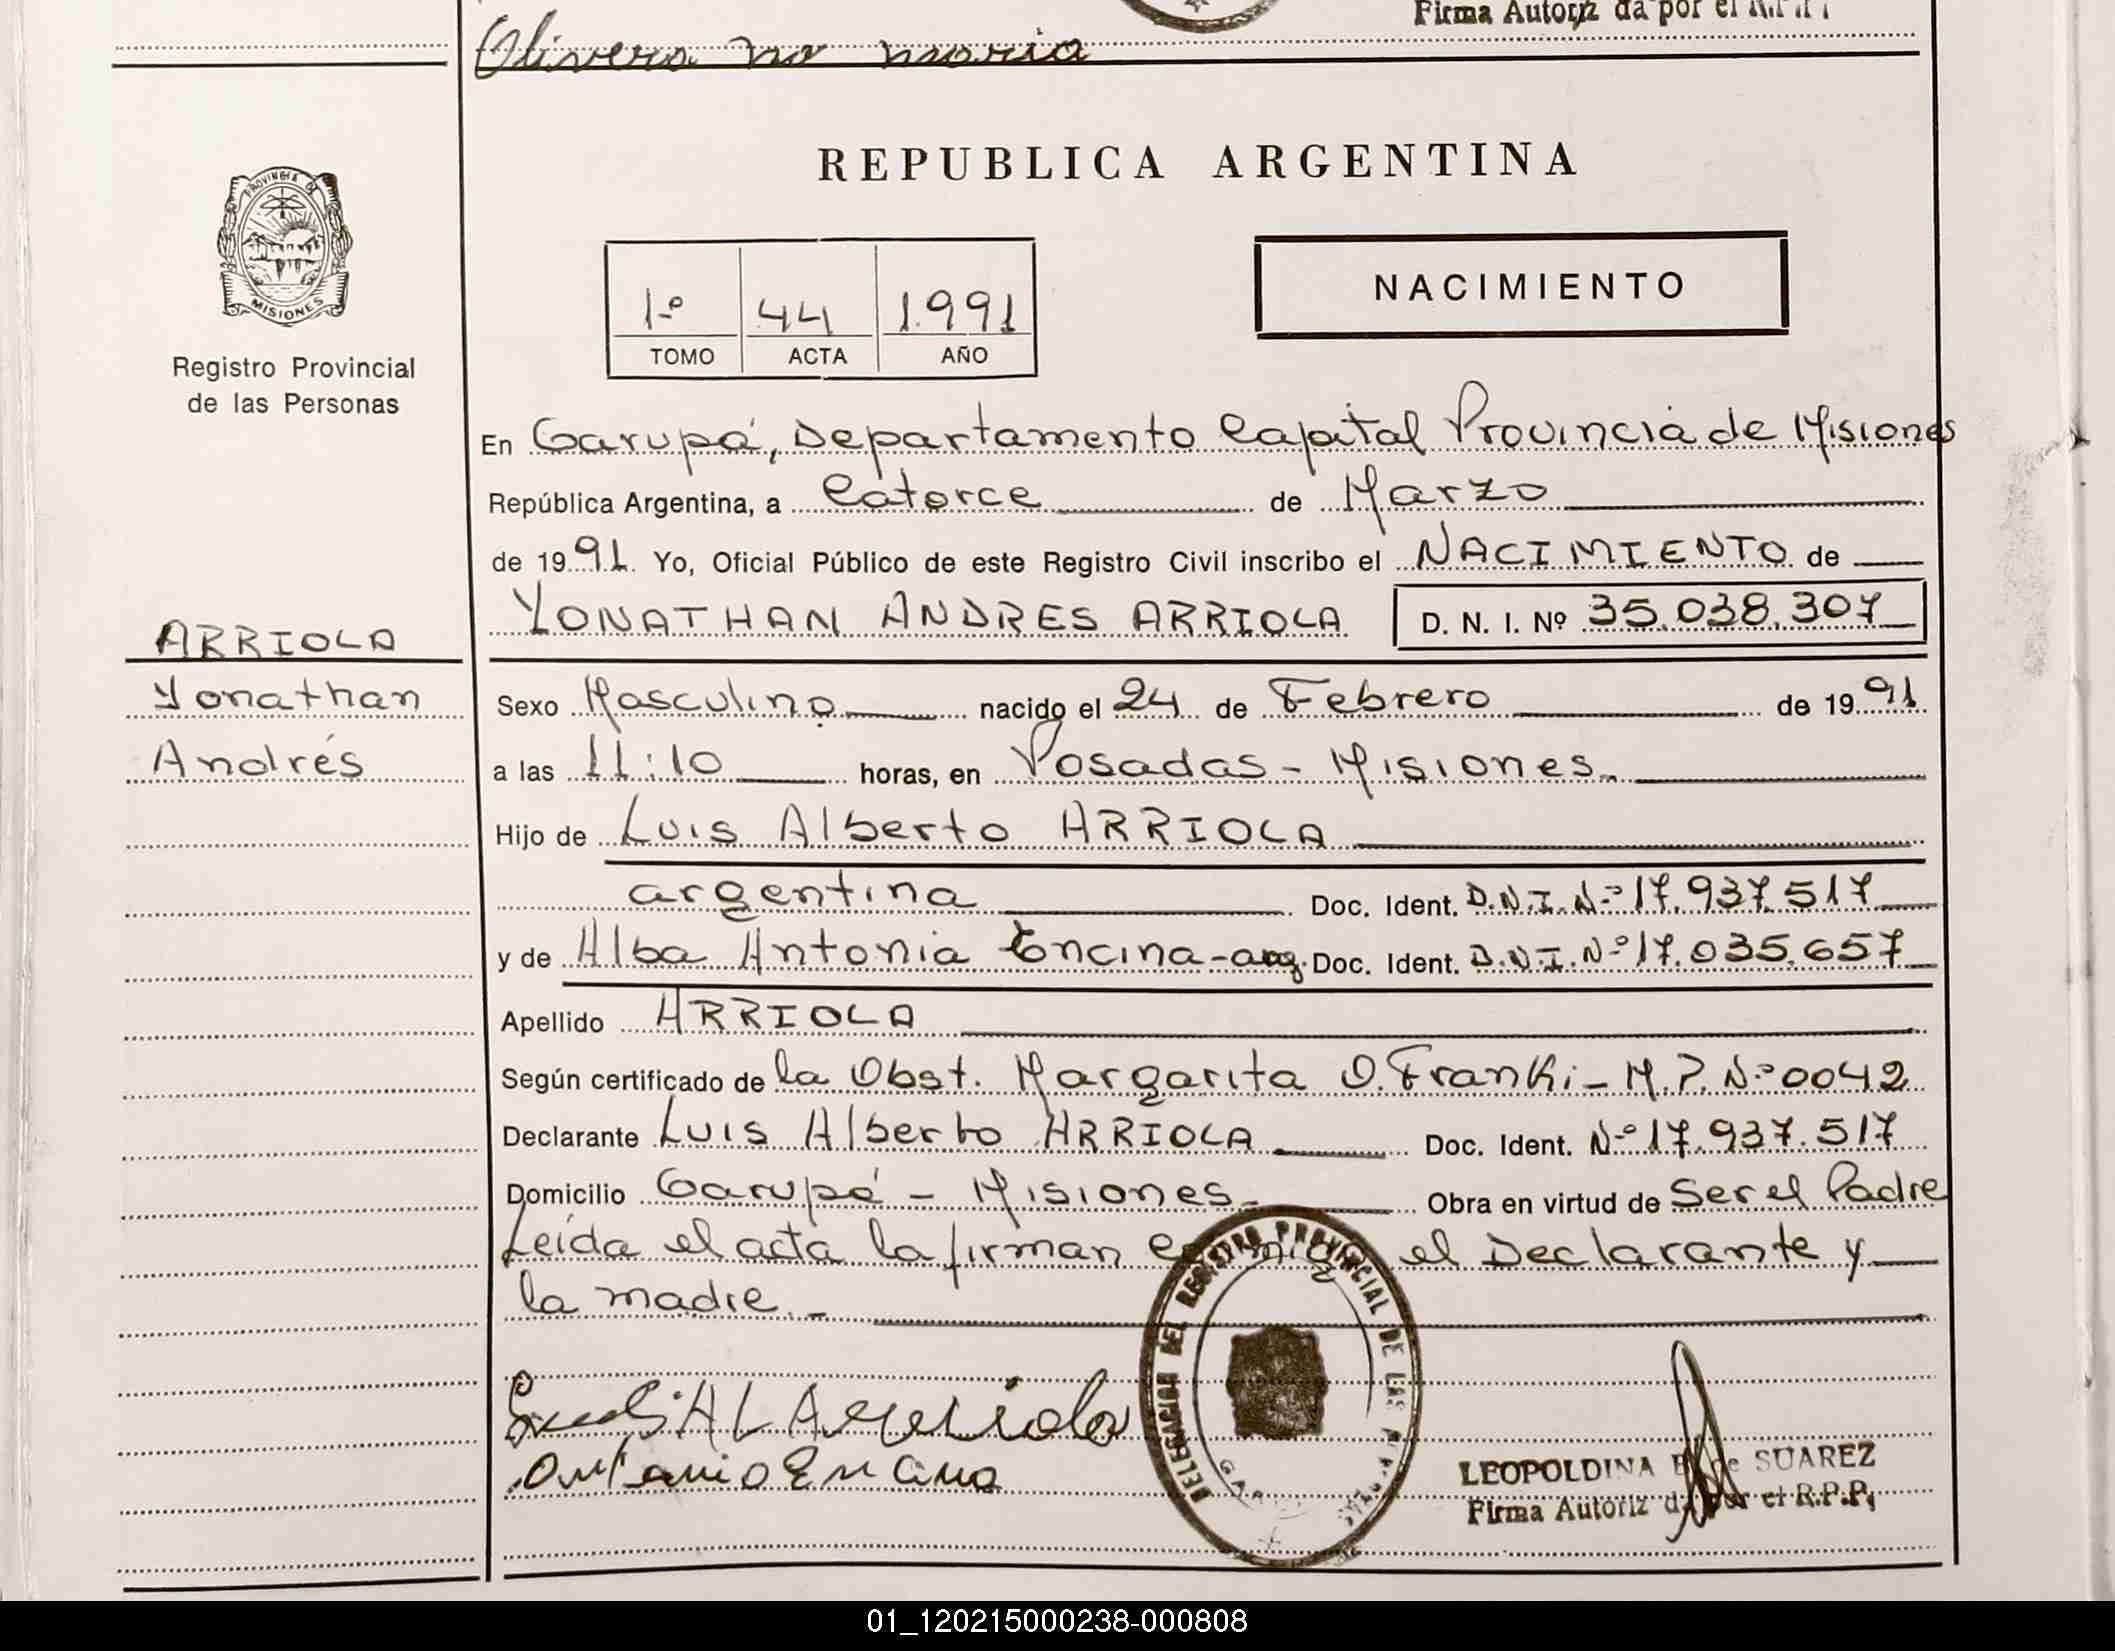 Firma Autoriz da por el R.P.P.
Olivera no moria
PROVINCIA DE
MISIONES
Registro Provincial
de las Personas
REPUBLICA ARGENTINA
1º 44 1.991
TOMO ACTA AÑO
NACIMIENTO
En Garupá, Departamento Capital Provincia de Misiones
República Argentina, a Catorce de Marzo
de 1991. Yo, Oficial Público de este Registro Civil inscribo el NACIMIENTO de
YONATHAN ANDRES ARRIOLA D. N. I. Nº 35.038.307
ARRIOLA
Yonathan
Andrés
Sexo Masculino nacido el 24 de Febrero de 1991
a las 11:10 horas, en Posadas - Misiones.
Hijo de Luis Alberto ARRIOLA
argentina Doc. Ident. D.N.I. Nº 17.937.517
y de Alba Antonia Encina - arg. Doc. Ident. D.N.I. Nº 17.035.657
Apellido ARRIOLA
Según certificado de la Obst. Margarita O. Franki - M.P. Nº 0042
Declarante Luis Alberto ARRIOLA Doc. Ident. Nº 17.937.517
Domicilio Garupá - Misiones - Obra en virtud de Ser el Padre
Leída el acta la firman el Declarante y
la madre. -
DELEGACION DEL REGISTRO PROVINCIAL DE LAS
Arriola
Encina
LEOPOLDINA de SUAREZ
Firma Autoriz da por el R.P.P.
01_120215000238-000808